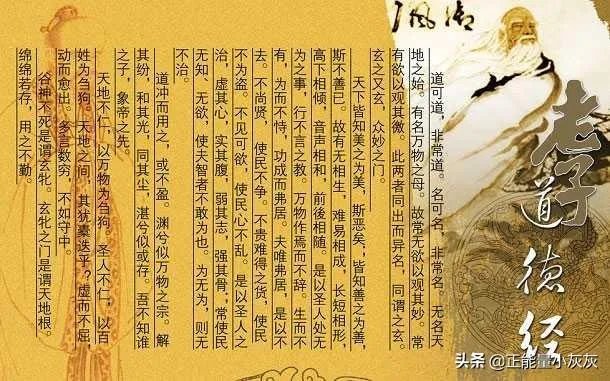 老子
道德经
道可道，非常道。名可名，非常名。无名天
地之始。有名万物之母。故常无欲以观其妙。常
有欲以观其微。此两者同出而异名，同谓之玄。
玄之又玄，众妙之门。
天下皆知美之为美，斯恶矣；皆知善之为善，
斯不善已。故有无相生，难易相成，长短相形，
高下相倾，音声相和，前後相随。是以圣人处无
为之事，行不言之教。万物作焉而不辞。生而不
有，为而不恃，功成而弗居。夫唯弗居，是以不
去。不尚贤，使民不争。不贵难得之货，使民
不为盗。不见可欲，使民心不乱。是以圣人之
治，虚其心，实其腹，弱其志，强其骨；常使民
无知、无欲，使夫智者不敢为也。为无为，则无
不治。
道冲而用之，或不盈。渊兮似万物之宗。解
其纷，和其光，同其尘，湛兮似或存。吾不知谁
之子，象帝之先。
天地不仁，以万物为刍狗。圣人不仁，以百
姓为刍狗。天地之间，其犹橐迭乎？虚而不屈
动而愈出。多言数穷，不如守中。
谷神不死是谓玄牝。玄牝之门是谓天地根。
绵绵若存，用之不勤。
头条 @正能量小灰灰